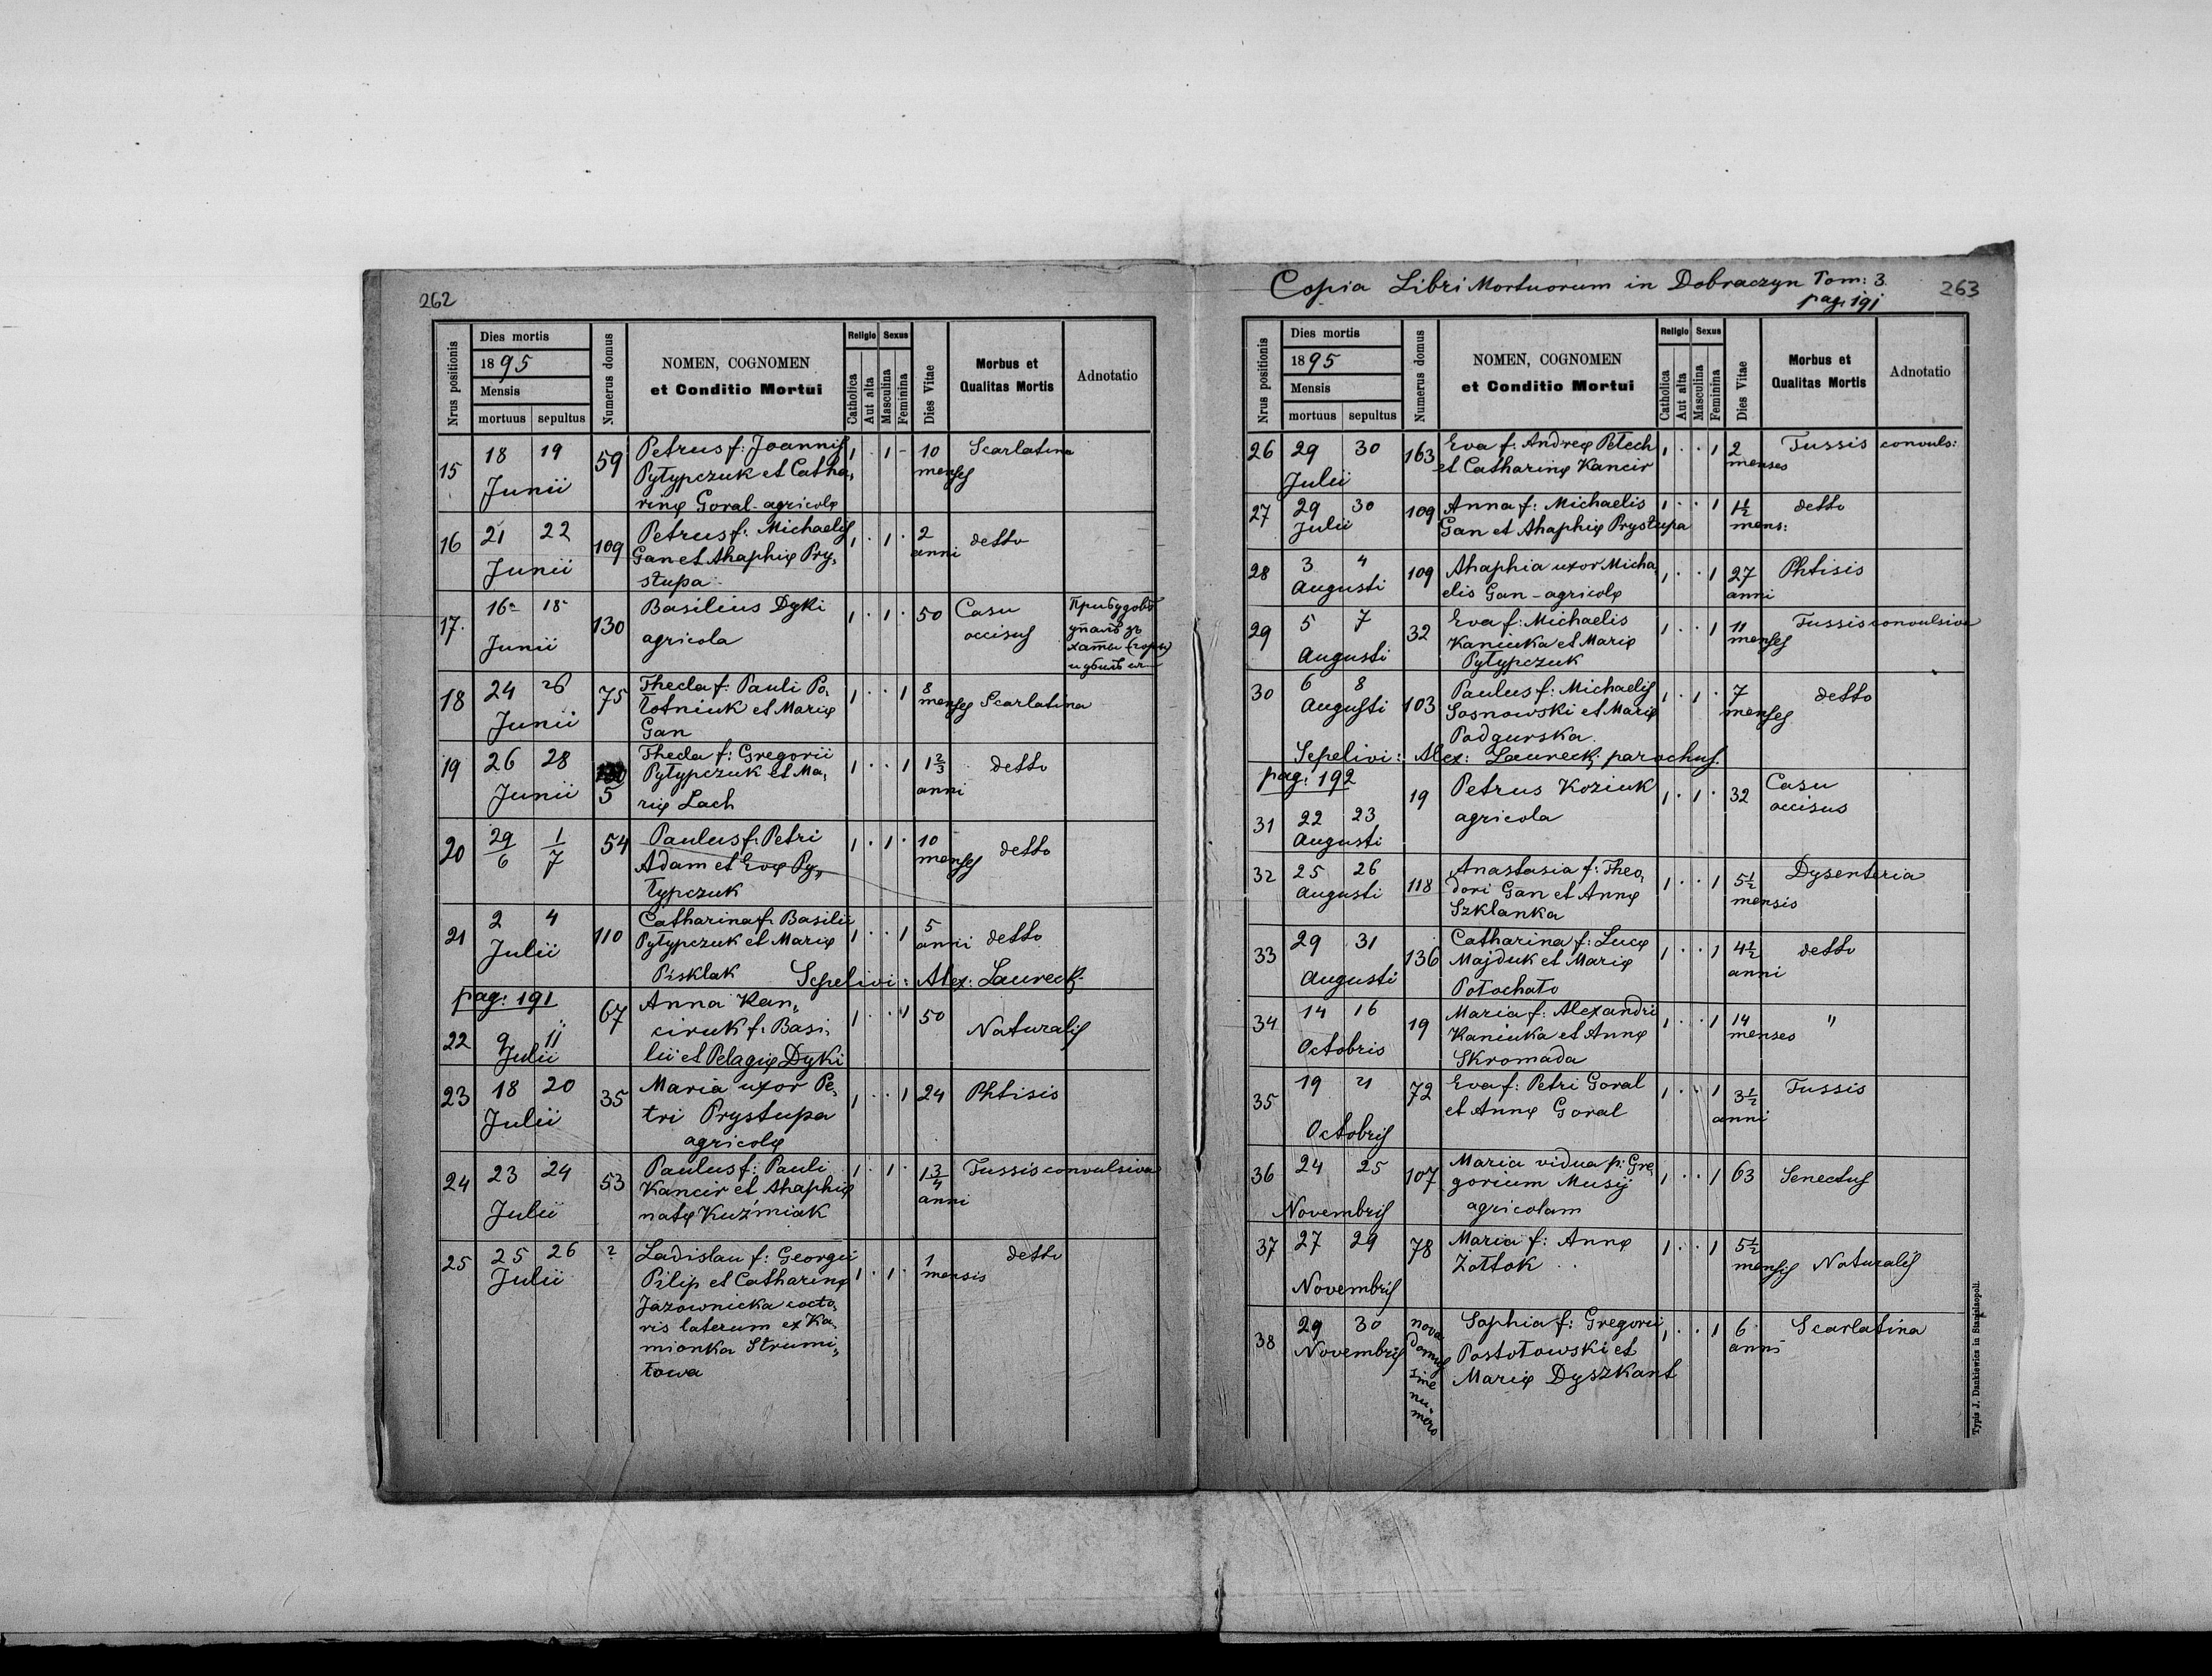 262
Dies mortis
1895
Mensis
mortuus sepultus
Nrus positionis
Numerus domus
NOMEN, COGNOMEN
et Conditio Mortui
Religio Sexus
Catholica
Aut alta
Masculina
Feminina
Dies Vitae
Morbus et
Qualitas Mortis
Adnotatio
15 18 19 59 Petrus f: Joannis 1 · 1 - 10 Scarlatina
Junii Pyłypczuk et Catha, menses
rinę Goral - agricolę
16 21 22 109 Petrus f: Michaelis 1 · 1 · 2 detto
Junii Gan et Ahaphię Pry, anni
stupa
17. 16 18 130 Basilius Dyki 1 · 1 · 50 Casu
Junii agricola occisus
18 24 26 75 Thecla f: Pauli Po, 1 · · 1 8 Scarlatina
Junii łotniuk et Marię menses
Gan
19 26 28 5 Thecla f: Gregorii 1 · · 1 1 2/3 detto
Junii Pyłypczuk et Ma, anni
rię Lach
20 29/6 1/7 54 Paulus f: Petri 1 · 1 · 10 detto
Adam et Evę Py,, menses
łypczuk
21 2 4 110 Catharina f: Basilii 1 · · 1 5 detto
Julii Pyłypczuk et Marię anni
Pisklak Sepelivi: Alex: Laureck
pag: 191
22 9 11 67 Anna Kan,, 1 · · 1 50 Naturalis
Julii ciruk f: Basi,
lii et Pelagię Dyki
23 18 20 35 Maria uxor Pe, 1 · · 1 24 Phtisis
Julii tri Prystupa
agricolę
24 23 24 53 Paulus f: Pauli 1 · 1 · 1 3/4 Tussis convulsiva
Julii Kancir et Ahaphię anni
natę Kuźmiak
25 25 26 ? Ladislau f: Georgii 1 · 1 · 1 detto
Julii Pilip et Catharinę mensis
Jazownicka cocto,
ris laterum ex Ka,
mionka Strumi,,
łowa
Copia Libri Mortuorum in Dobraczyn Tom: 3.
pag: 191
263
Dies mortis
1895
Mensis
mortuus sepultus
Nrus positionis
Numerus domus
NOMEN, COGNOMEN
et Conditio Mortui
Religio Sexus
Catholica
Aut alta
Masculina
Feminina
Dies Vitae
Morbus et
Qualitas Mortis
Adnotatio
26 29 30 163 Eva f: Andreę Pełech 1 · · 1 2 Tussis convuls:
Julii et Catharinę Kancir menses
27 29 30 109 Anna f: Michaelis 1 · · 1 1 1/2 detto
Julii Gan et Ahaphię Prystupa mens:
28 3 4 109 Ahaphia uxor Micha, 1 · · 1 27 Phtisis
Augusti elis Gan - agricolę anni
29 5 7 32 Eva f: Michaelis 1 · · 1 11 Tussis convulsiva
Augusti Kaniuka et Marię menses
Pyłypczuk
30 6 8 103 Paulus f: Michaelis 1 · 1 · 7 detto
Augusti Sosnowski et Marię menses
Podgurska.
Sepelivi: Alex: Laureck: parochus.
pag: 192
31 22 23 19 Petrus Koziuk 1 · 1 · 32 Casu
Augusti agricola occisus
32 25 26 118 Anastasia f: Theo, 1 · · 1 5 1/2 Dysenteria
Augusti dori Gan et Annę mensis
Szklanka
33 29 31 136 Catharina f: Lucę 1 · · 1 4 1/2 detto
Augusti Majduk et Marię anni
Połochało
34 14 16 19 Maria f: Alexandri 1 · · 1 14 "
Octobris Kaniuka et Annę menses
Skromada
35 19 21 72 Eva f: Petri Goral 1 · · 1 3 1/2 Tussis
Octobris et Annę Goral anni
36 24 25 107 Maria vidua p: Gre, 1 · · 1 63 Senectus
Novembris gorium Musij
agricolam
37 27 29 78 Maria f: Annę 1 · · 1 5 1/2 Naturalis
Novembris Żołtok mensis
38 29 30 nova domus sine nu,mero Sophia f: Gregorii 1 · · 1 6 Scarlatina
Novembris Postołowski et anni
Marię Dyszkant
Typis J. Dankiewicz in Stanislaopoli.